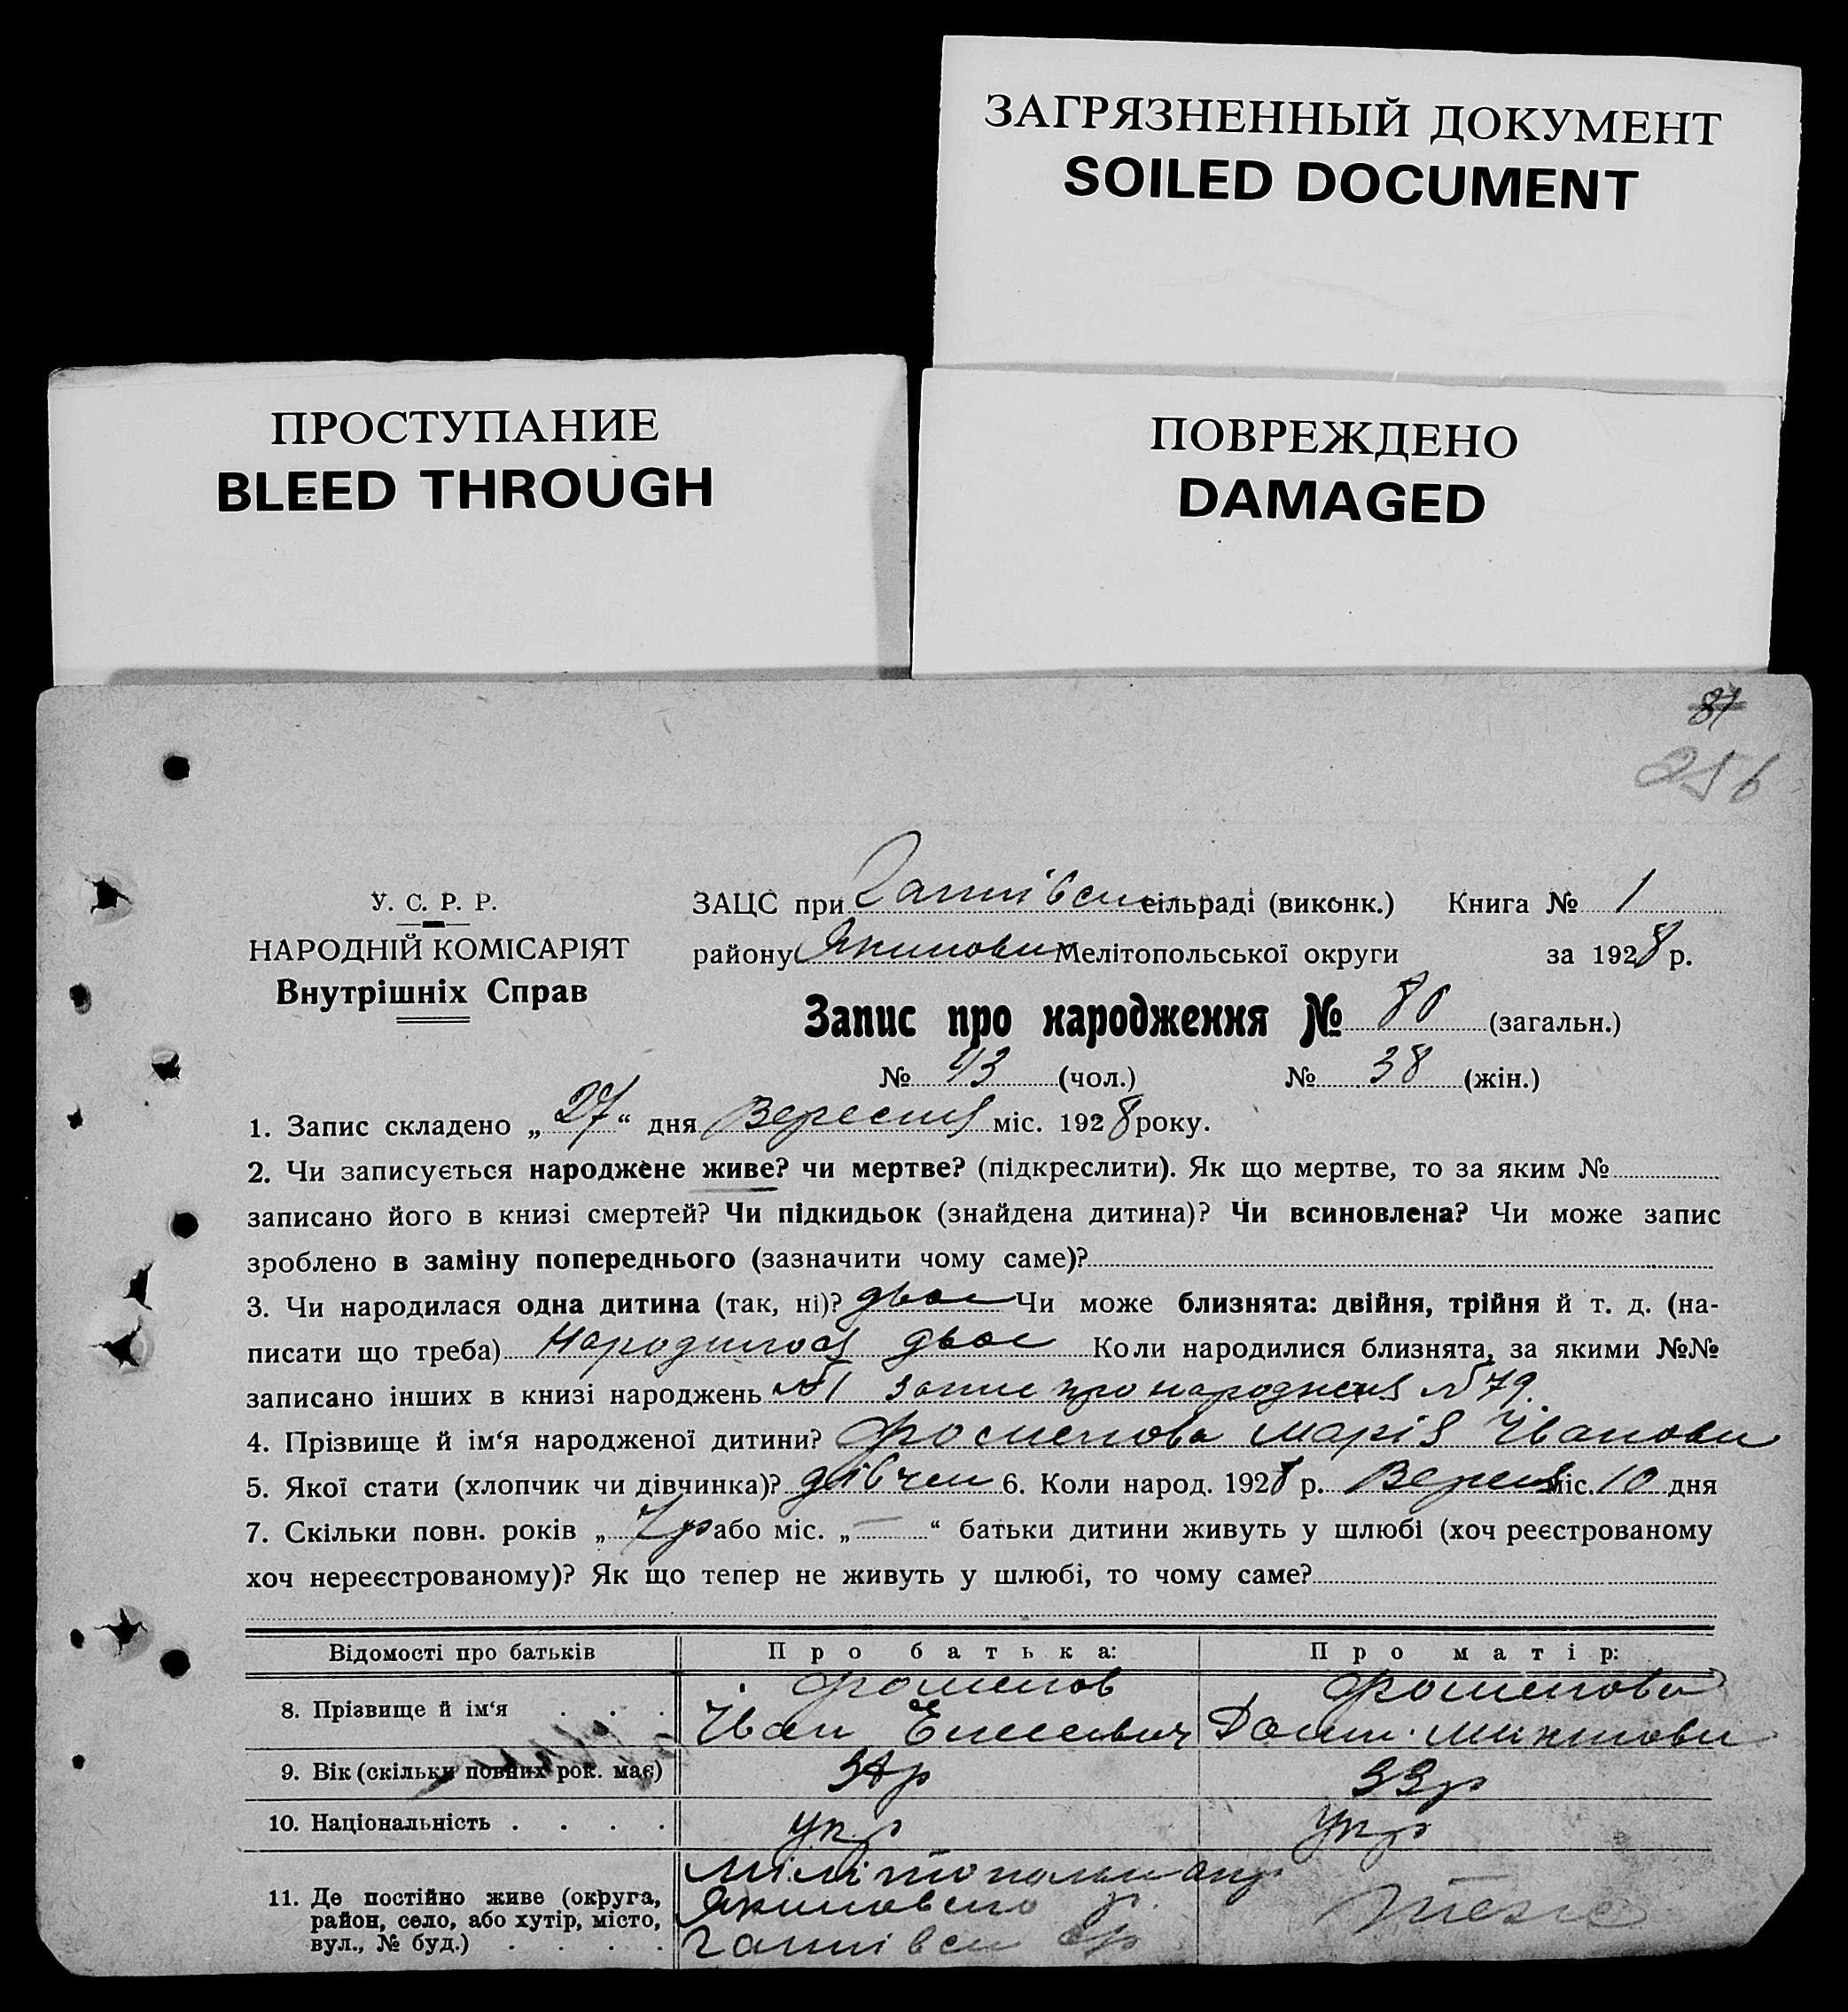 ЗАГРЯЗНЕННЫЙ ДОКУМЕНТ
SOILED DOCUMENT
ПРОСТУПАНИЕ
BLEED THROUGH
ПОВРЕЖДЕНО
DAMAGED
81
256
У. С. Р. Р.
НАРОДНІЙ КОМІСАРІЯТ
Внутрішніх Справ
ЗАЦС при сільраді (виконк.) Книга № 1
району Якимовск Мелітопольської округи за 1928 р.
Запис про народження № 80 (загальн.)
№ 43 (чол.) № 38 (жін.)
1. Запис складено „27“ дня Вересня міс. 1928 року.
2. Чи записується народжене живе? чи мертве? (підкреслити). Як що мертве, то за яким №
записано його в книзі смертей? Чи підкидьок (знайдена дитина)? Чи всиновлена? Чи може запис
зроблено в заміну попереднього (зазначити чому саме)?
3. Чи народилася одна дитина (так, ні)? двое Чи може близнята: двійня, трійня й т. д. (на-
писати що треба) Народилося двое Коли народилися близнята, за якими №№
записано інших в книзі народжень №1 запис про народження № 79.
4. Прізвище й ім‘я народженої дитини? Марія Іванови
5. Якої стати (хлопчик чи дівчинка)? дівчен 6. Коли народ. 1928 р. Вересня міс. 10 дня
7. Скільки повн. років „ або міс. „—“ батьки дитини живуть у шлюбі (хоч реєстрованому
хоч нереєстрованому)? Як що тепер не живуть у шлюбі, то чому саме?
Відомості про батьків Про батька: Про матір:
8. Прізвище й ім‘я . . .
Іван
9. Вік (скільки повних рок. має) 34р 33р
10. Національність . . . . укр укр
11. Де постійно живе (округа,
район, село, або хутір, місто,
вул., № буд.) . . . .
Якимовско р.
теже